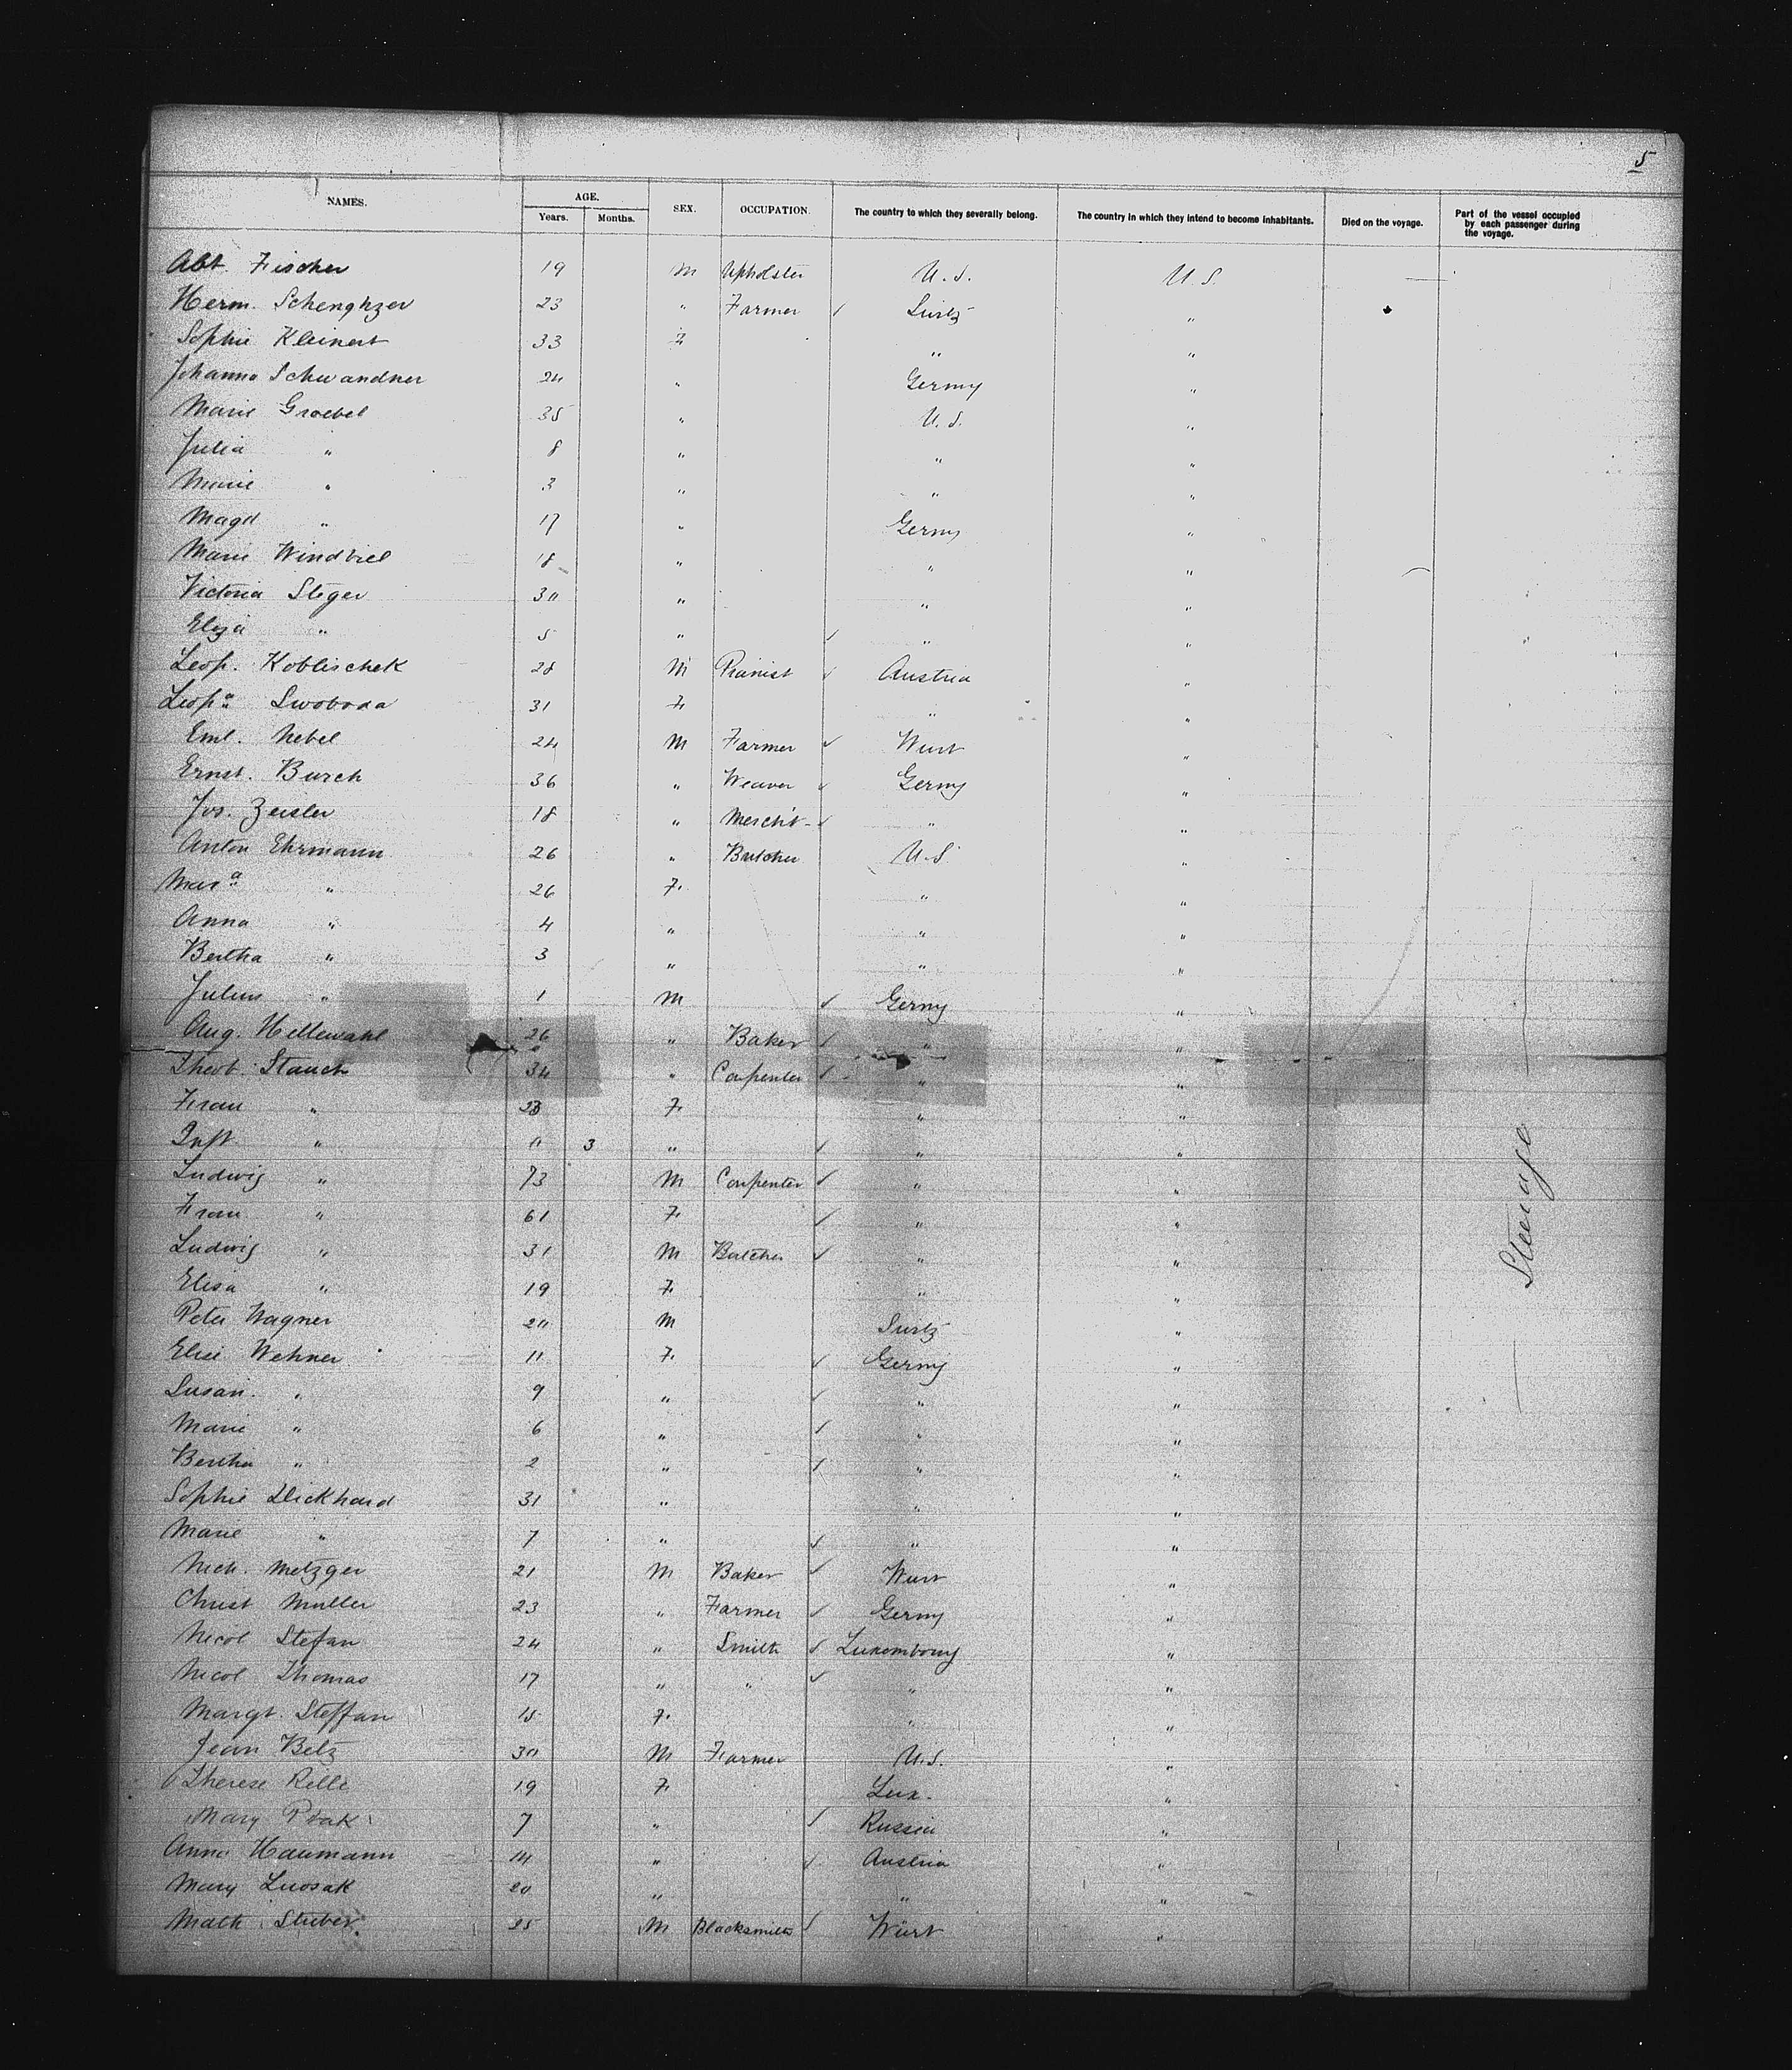 5
NAMES. AGE. SEX. OCCUPATION. The country to which they severally belong. The country in which they intend to become inhabitants. Died on the voyage. Part of the vessel occupied by each passenger during the voyage.
Years. Months.
Abt. Fischer 19 M Upholster U.S. U.S.
Herm. Schenghzer 23 " Farmer ✓ Switz "
Sophie Kleinert 33 F " "
Johanna Schwandner 24 " Germy "
Marie Groebel 35 " U.S. "
Julia " 8 " " "
Marie " 3 " " "
Magd " 17 " Germy "
Marie Windbiel 18 " " "
Victoria Steger 30 " " "
Eliza " 5 " ✓ " "
Leop. Koblischek 28 M Pianist ✓ Austria "
Leopa Swoboda 31 F " "
Eml. Nebel 24 M Farmer ✓ Wurt "
Ernst. Burch 36 " Weaver ✓ Germy "
Jos. Zeisler 18 " Mercht ✓ " "
Anton Ehrmann 26 " Butcher U.S "
Mara " 26 F. " "
Anna " 4 " " "
Bertha " 3 " " "
Julius " 1 M ✓ Germy "
Aug. Hellewahl 26 " Baker ✓ " "
Theob. Stauch 34 " Carpenter ✓ " "
Frau " 23 F. " "
Inft " 0 3 " ✓ " "
Ludwig " 73 M Carpenter ✓ " "
Frau " 61 F. ✓ " "
Ludwig " 31 M Butcher ✓ " "
Elisa " 19 F. " "
Peter Wagner 20 M Switz "
Elise Wehner 11 F. ✓ Germy "
Susan. " 9 " ✓ " "
Marie " 6 " ✓ " "
Bertha " 2 " ✓ " "
Sophie Dickhard 31 " " "
Marie " 7 " ✓ " "
Mich. Metzger 21 M Baker ✓ Wurt "
Christ Muller 23 " Farmer ✓ Germy "
Nicol Stefan 24 " Smith ✓ Luxembourg "
Nicol Thomas 17 " " ✓ " "
Margt. Steffan 15 F. " "
Jean Betz 30 M Farmer U.S. "
Therese Rille 19 F Lux. "
Mary Ptak 7 " ✓ Russia "
Anna Haumann 14 " ✓ Austria "
Mary Luosak 20 " " "
Math. Stuber 25 M Blacksmith ✓ Würt "
Steerage